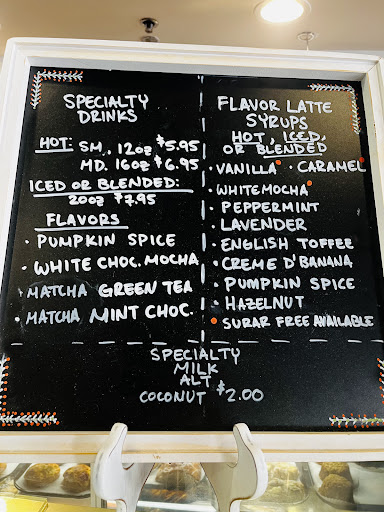 SPECIALTY
DRINKS
HOT: SM. 12OZ $5.95
MD. 16OZ $6.95
ICED OR BLENDED:
20OZ $7.95
FLAVORS
• PUMPKIN SPICE
• WHITE CHOC. MOCHA
• MATCHA GREEN TEA
• MATCHA MINT CHOC.
FLAVOR LATTE
SYRUPS
HOT, ICED,
OR BLENDED
• VANILLA • CARAMEL
• WHITE MOCHA
• PEPPERMINT
• LAVENDER
• ENGLISH TOFFEE
• CREME D'BANANA
• PUMPKIN SPICE
• HAZELNUT
• SURAR FREE AVAILABLE
SPECIALTY
MILK
ALT
COCONUT $2.00